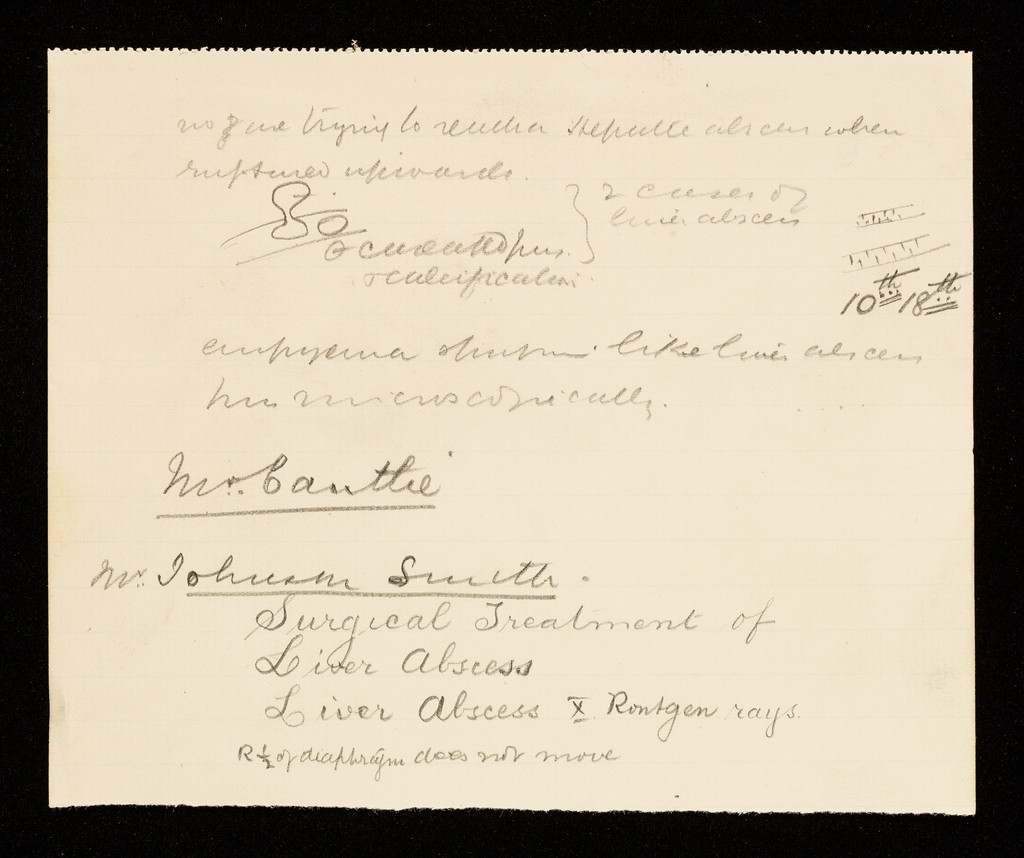 trying to reach a Hepatic abscess when
ruptured upwards.
2 cases of
liver abscess
calcification
10th 18th
empyema like liver abscess
pus microscopically.
Mr. Cantlie
Mr. Johnson Smith.
Surgical Treatment of
Liver Abscess
Liver Abscess X Rontgen rays.
R ½ of diaphragm does not move